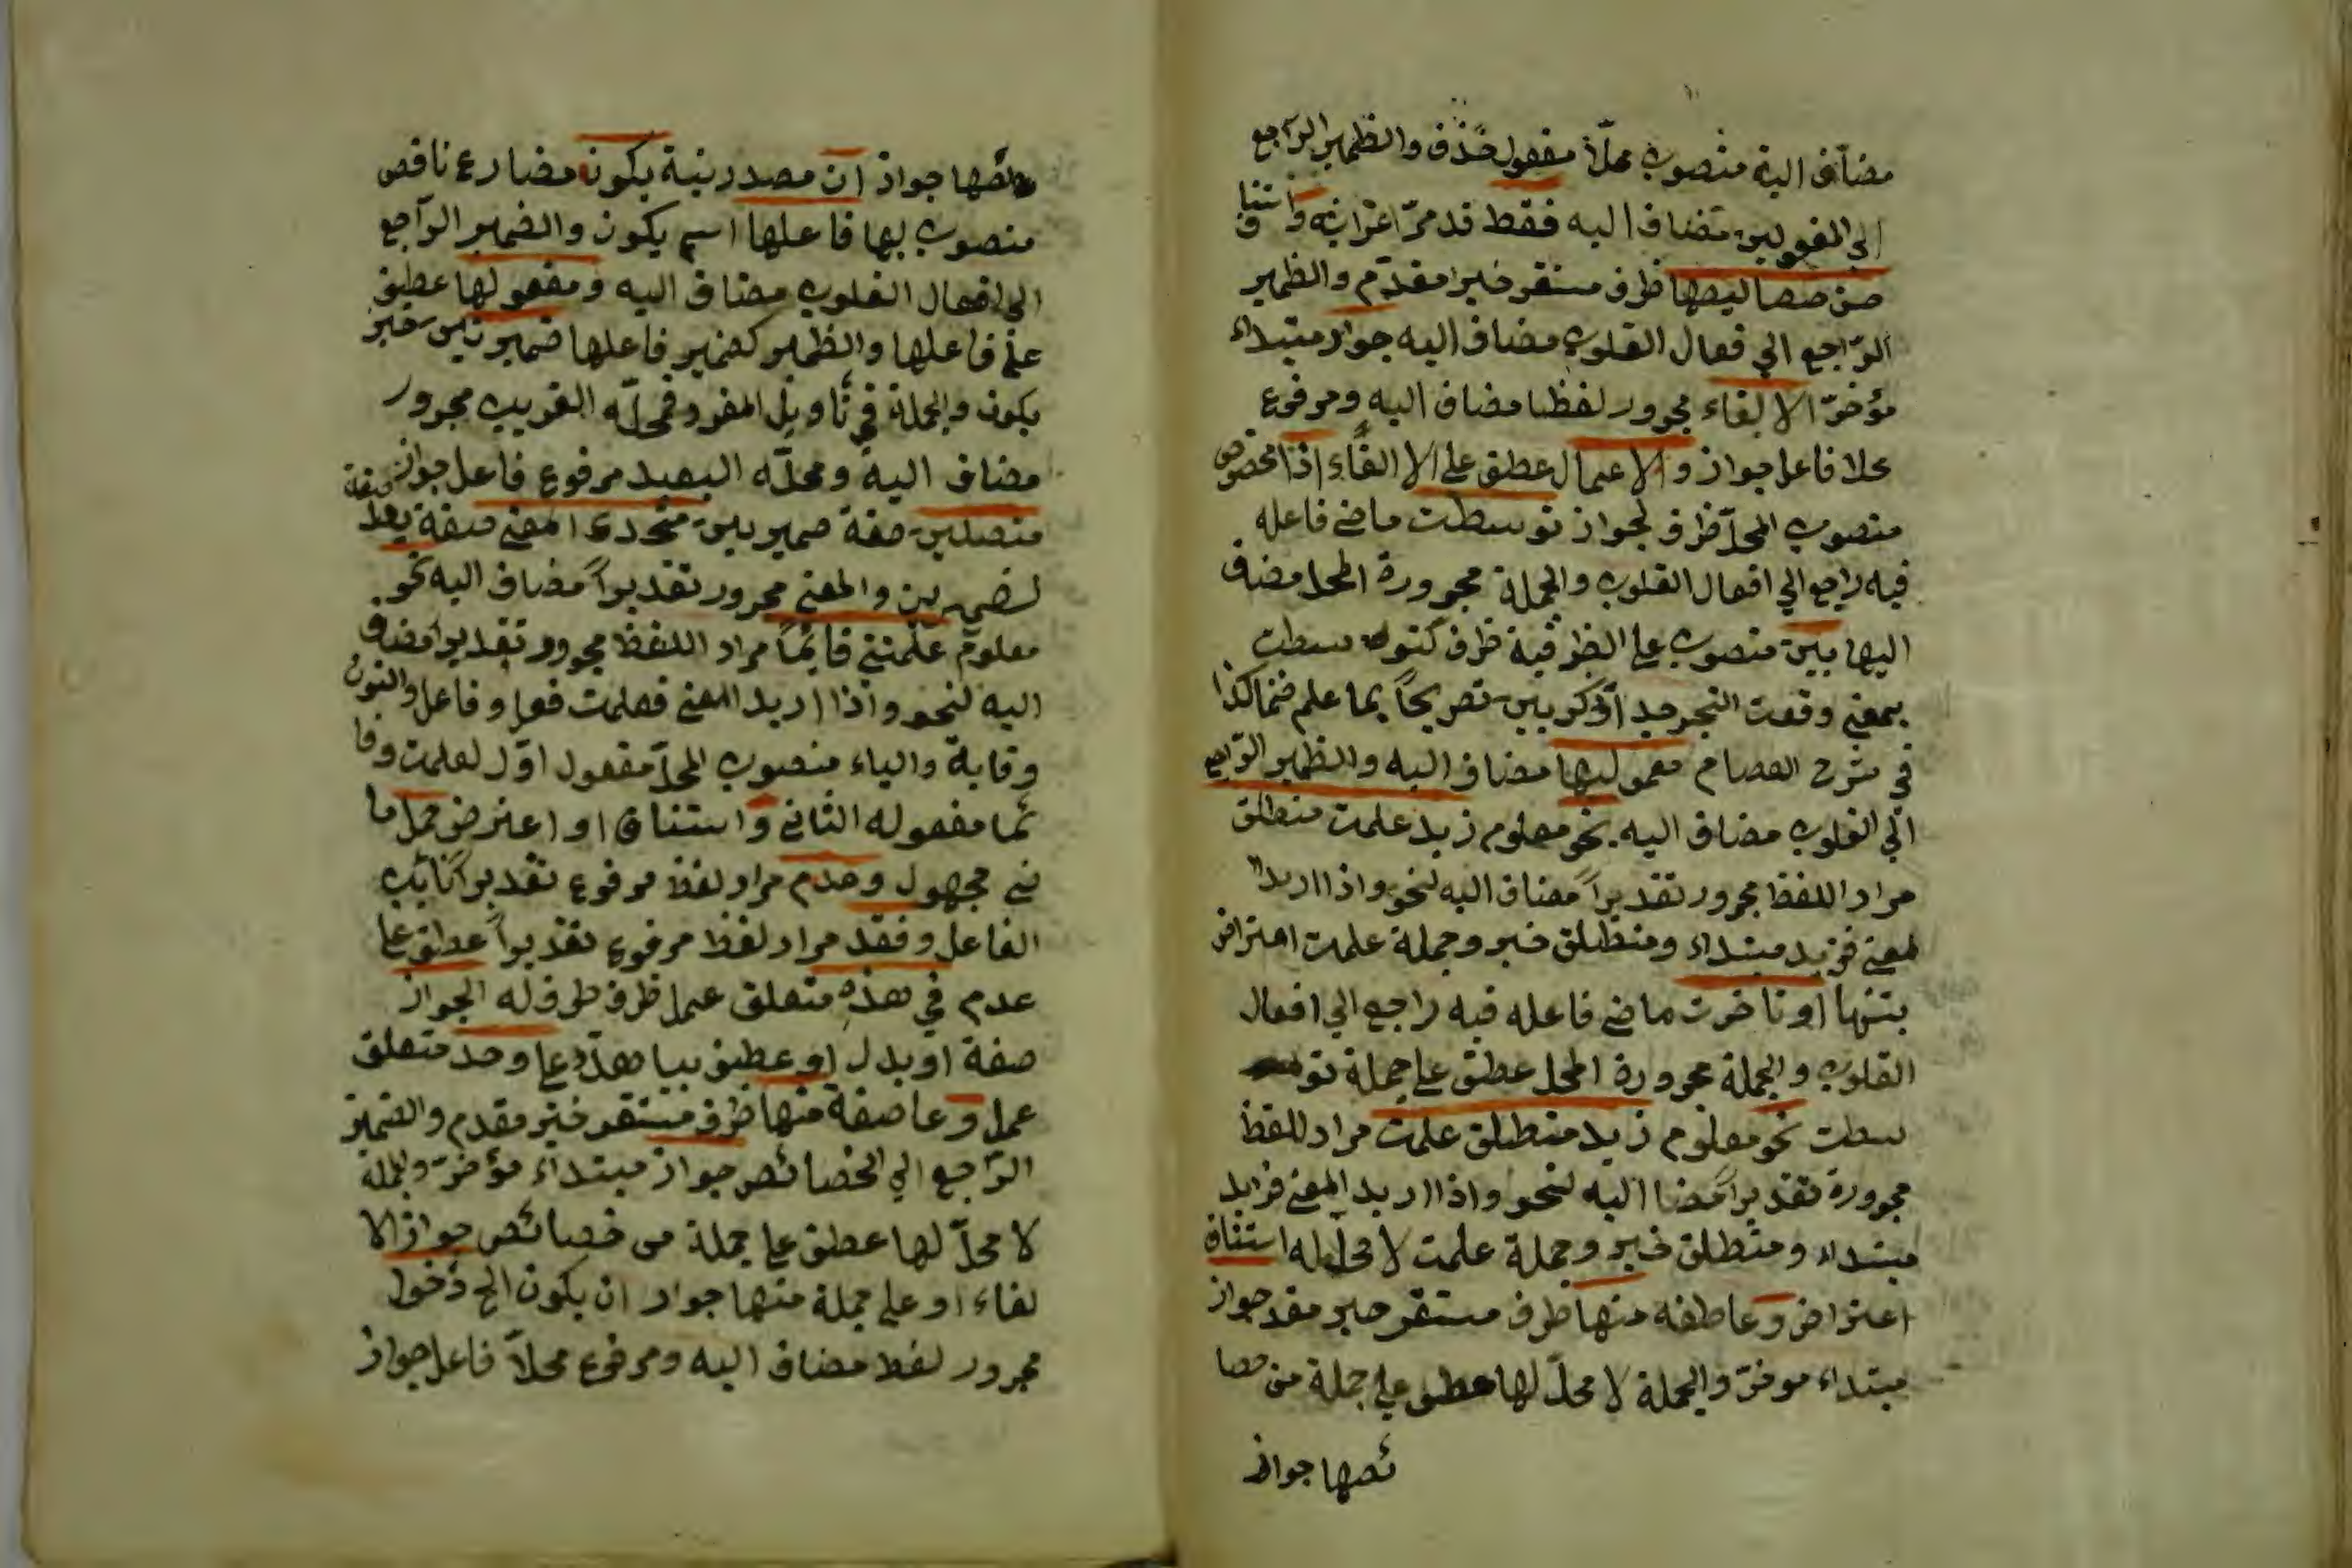 مضاف اليه منصوب محلا مفعول حذف والظمير الراجع
الي المفعولين مضاف اليه فقط قد مرّ اعرابه واستنا ف
من خصايصها ظرف مستقر خبر مقدّم والظمير
الرّاجع الي فعال القلوب مضاف اليه جواز مبتداء
مؤخرّ الالغاء مجرور لفظا مضاف اليه ومرفوع
محلا فاعل جواز والاعمال عطف علي الالغاء اذا مخصوص
منصوب المحلّ ظرف لجواز توسطت ماضي فاعله
فيه راجع الي افعال القلوب والجملة مجرورة المحل مضاف
اليها بين منصوب علي الظرفية ظرف سطت
بمعني وقعت ذكر بين تصريحاً بما علم ضمنا كذا
في شرح العصام معموليها مضاف اليه والظمير الرّاجع
الي القلوب مضاف اليه نحو معلوم زيد علمت منطلق
مراد اللفظ مجرور تقديراً مضاف اليه لنحو واذا اريد
لمعني فزيد مبتداء ومنطلق خبر وجملة علمت اعتراض
بينها او تاخرت ماضي فاعله فيه راجع الي افعال
القلوب والجملة مجرورة المحل عطف علي جملة تو
سطت نحو معلوم زيد منطلق علمت مراد للفظ
مجرورة تقديراً مضا اليه لنحو واذا اريد المعني فزيد
مبتداء ومنطلق خبر وجملة علمت لا محل له استناف
اعتراض وعاطفه منها ظرف مستقر خبر مقد جواز
مبتداء موخرّ والجملة لا محلّ لها عطف علي جملة من خصا
ئصها جواز
ئصها جواز ان مصدرنية يكون مضارع ناقص
منصوب بها فاعلها اسم يكون والضمير الرّاجع
الي افعال القلوب مضاف اليه ومفعولها عطف
علي فاعلها والظمير كضمير فاعلها ضميرين خبر
يكون والجملة في تاويل المفرد فمحلّه القريب مجرور
مضاف اليه ومحلّه البعيد مرفوع فاعل جواز
متصلين صفة ضميرين متحدي المعني صفة بعد صفة
لضميرين والمعني مجرور تقديراً مضاف اليه نحو
معلوم علمتني قائماً مراد اللفظ مجرور تقديرا مضاف
اليه لنحو واذا اريد المعني فعلمت فعل وفاعل والنون
وقاية والياء منصوب المحلّ مفعول اوّل لعلمت وقا
ئما مفعوله الثاني واستناف او اعترض حمل ما
ضي مجهول وعدم مراد لفظ مرفوع تقديراً نائب
الفاعل وفقد مراد لفظ مرفوع تقديراً عطف علي
عدم في هذه متعلق عمل ظرف ظرف له الجواز
صفة او بدل او عطف بيا هذه علي وجد متعلق
عمل وعاصفة منها ظرف مستقر خبر مقدم والضمير
الرّاجع الي الخصائص جواز مبتداء مؤخرّ والجملة
لا محلّ لها عطف علي جملة من خصائص جواز الا
لغاء او علي جملة منها جواز ان يكون الخ دخول
مجرور لفظ مضاف اليه ومرفوع محلاّ فاعل جواز